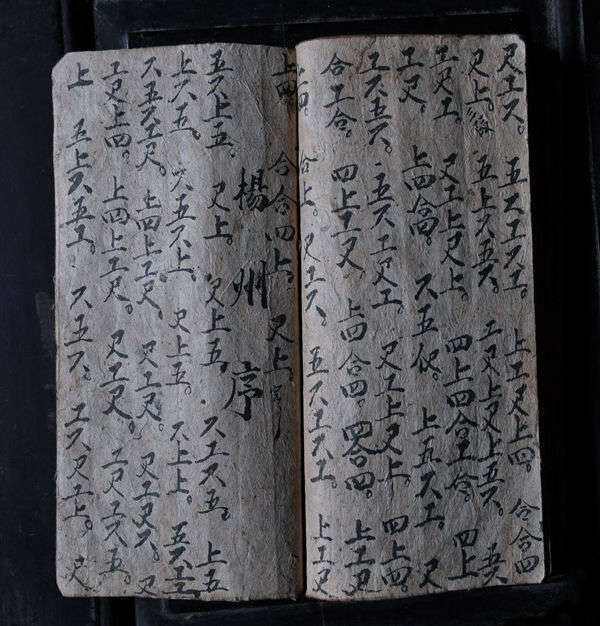 尺工六。五六工六工。上工尺上四。合合四
尺上。五上六五六。工尺上尺上五六。五六
工尺工。尺工上尺上。四上四合工合。四上
工尺。上四合。六五仩。上五六工。尺
工六五六。五六工尺工。尺工上尺上。四上四。
合工合。四上工尺 上四合四。四合四。上工尺
上四。合上。尺工六。五六工六工。上工尺
上四。合合四上。尺上。
揚州序
五六上五。尺上。尺上五 六工六五。上五
上六五。六五六上。尺上五。六上上。五六工工
六五六工尺。上四上工尺。尺工尺。尺工尺六。尺
工尺上四。上四上工尺。尺工尺。工尺工六五。
上 五上六五工。六五六。工六尺工上。尺